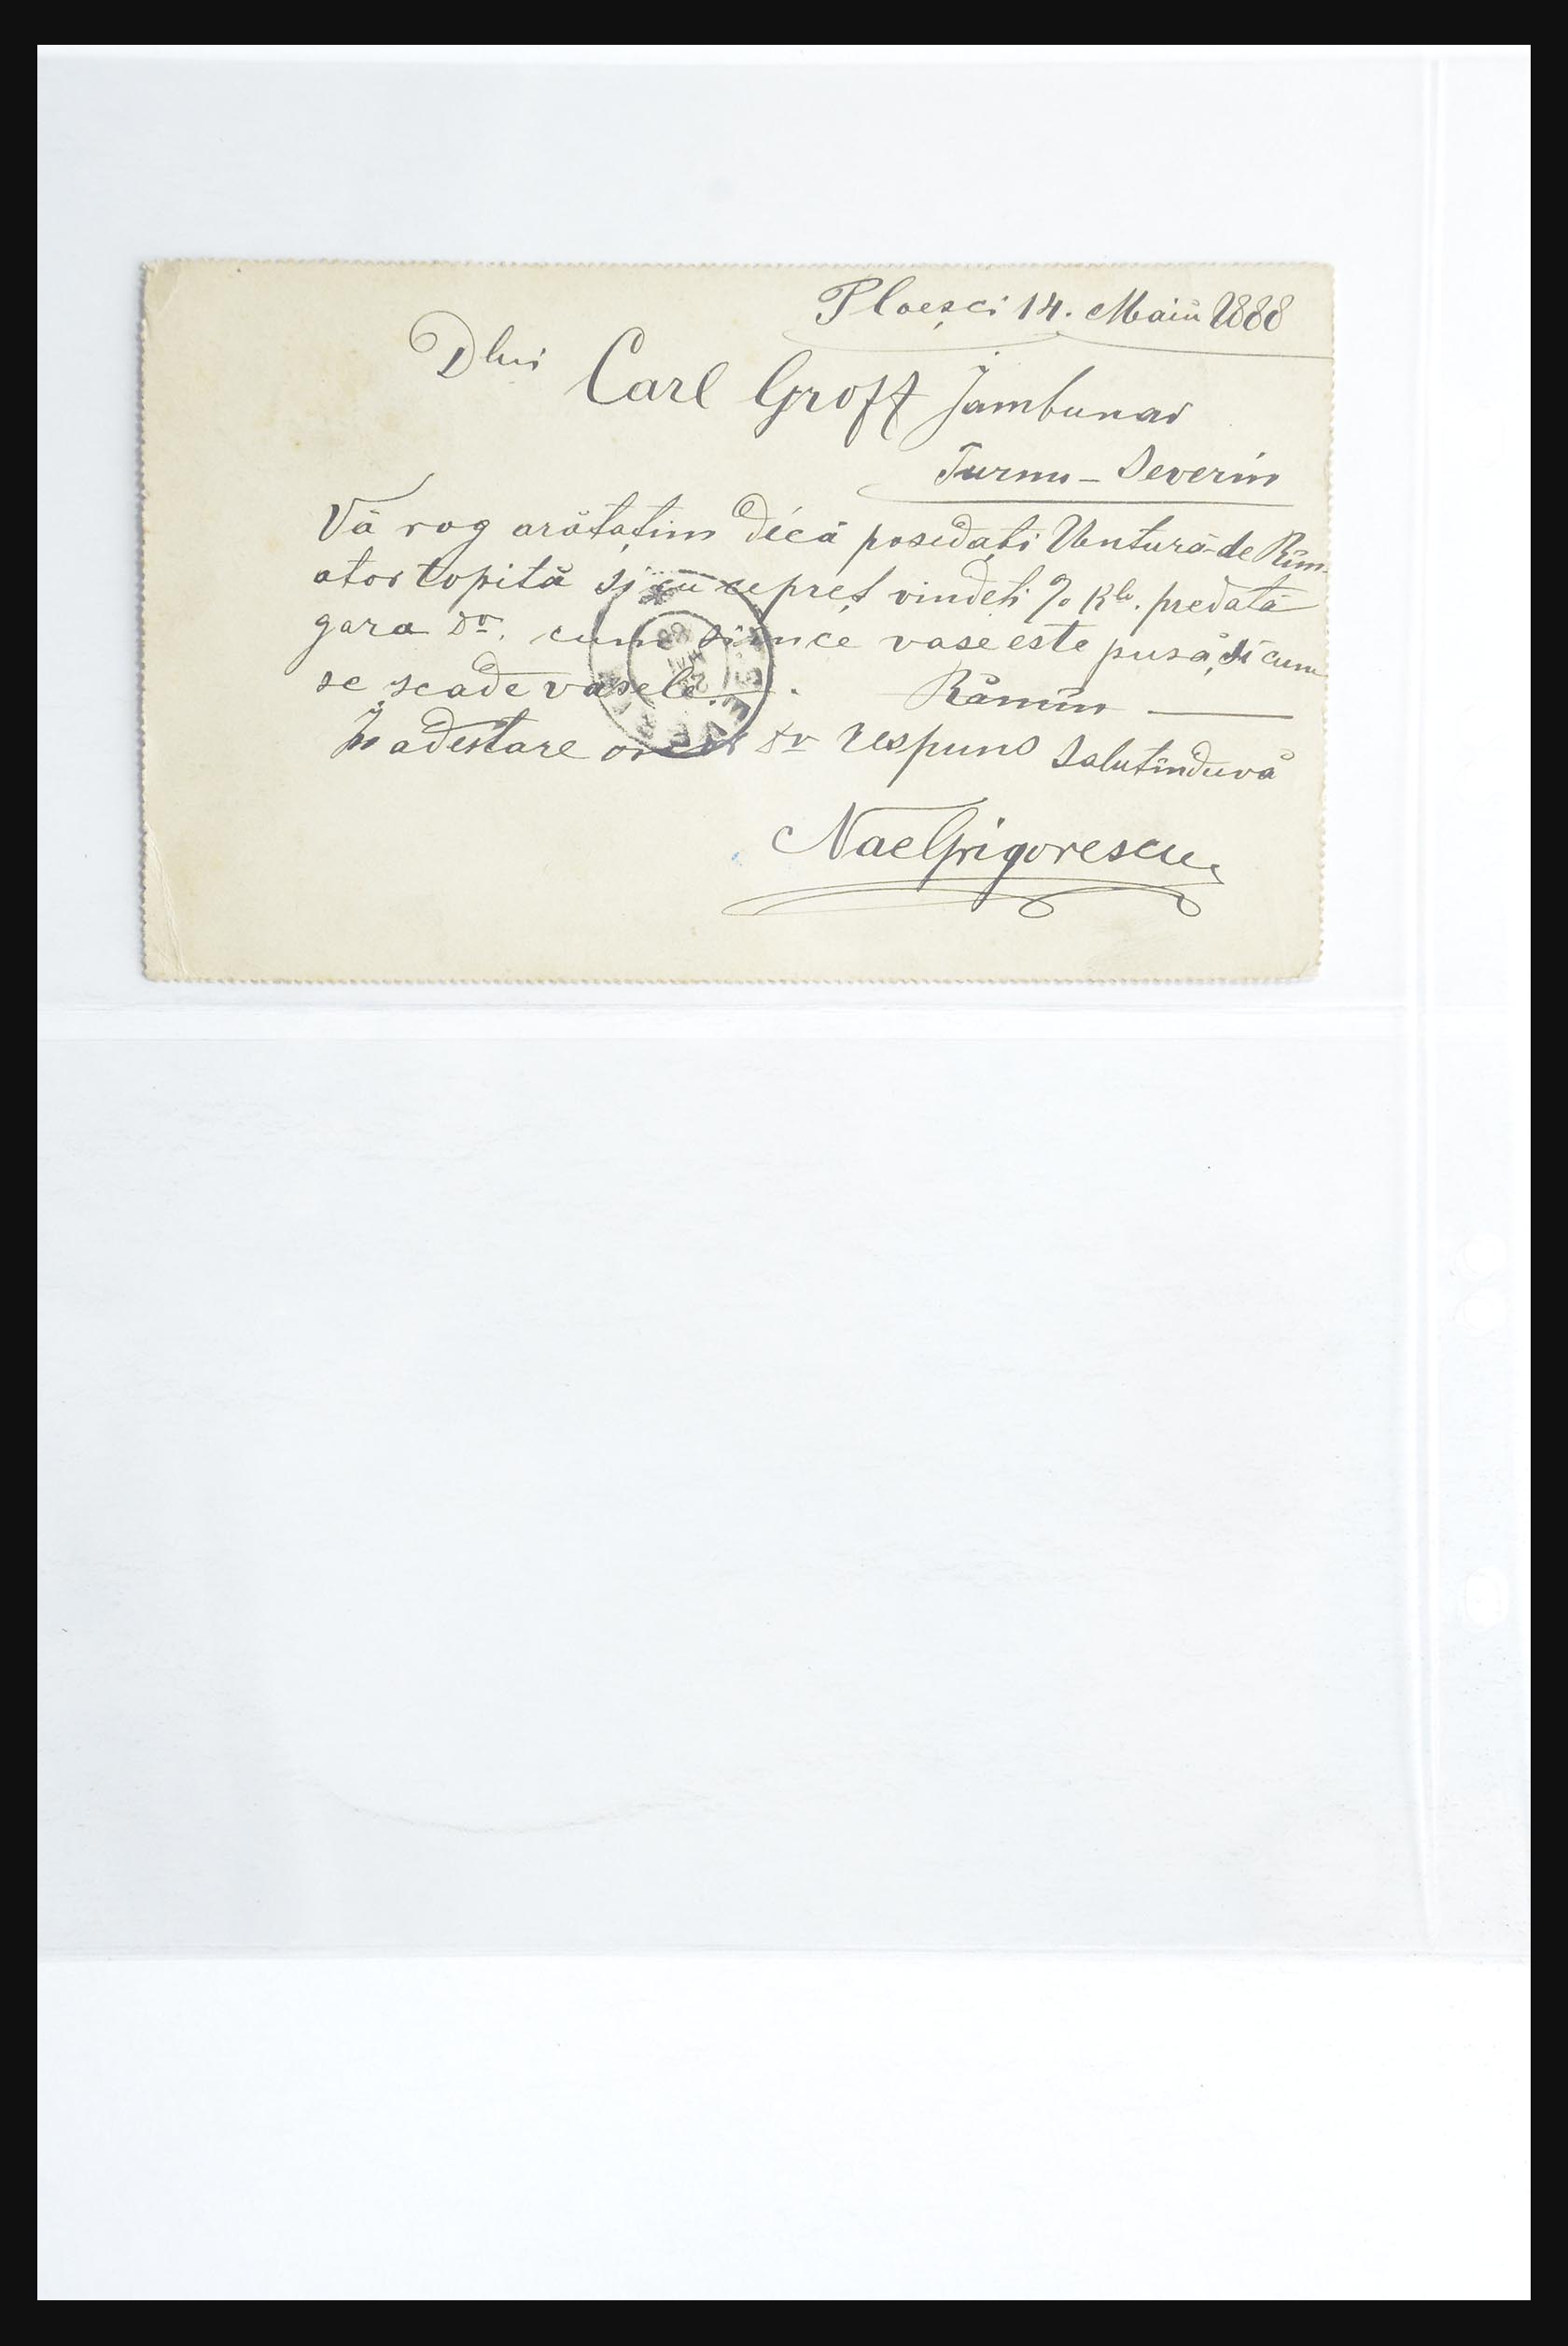 Ploesci 14. Maiu 1888
Dlui Carl Groff Jambunar
Turnu-Severin
Vă rog arătațim décă posedați Untură de Rîm-
ător topită și cu ce preț vindeți % Klo. predată
gara Dv. cum și în ce vase este pusă, și cum
se scade vasele. Rămîn
În adestare Dv respuns salutînduvă
Nae Grigorescu